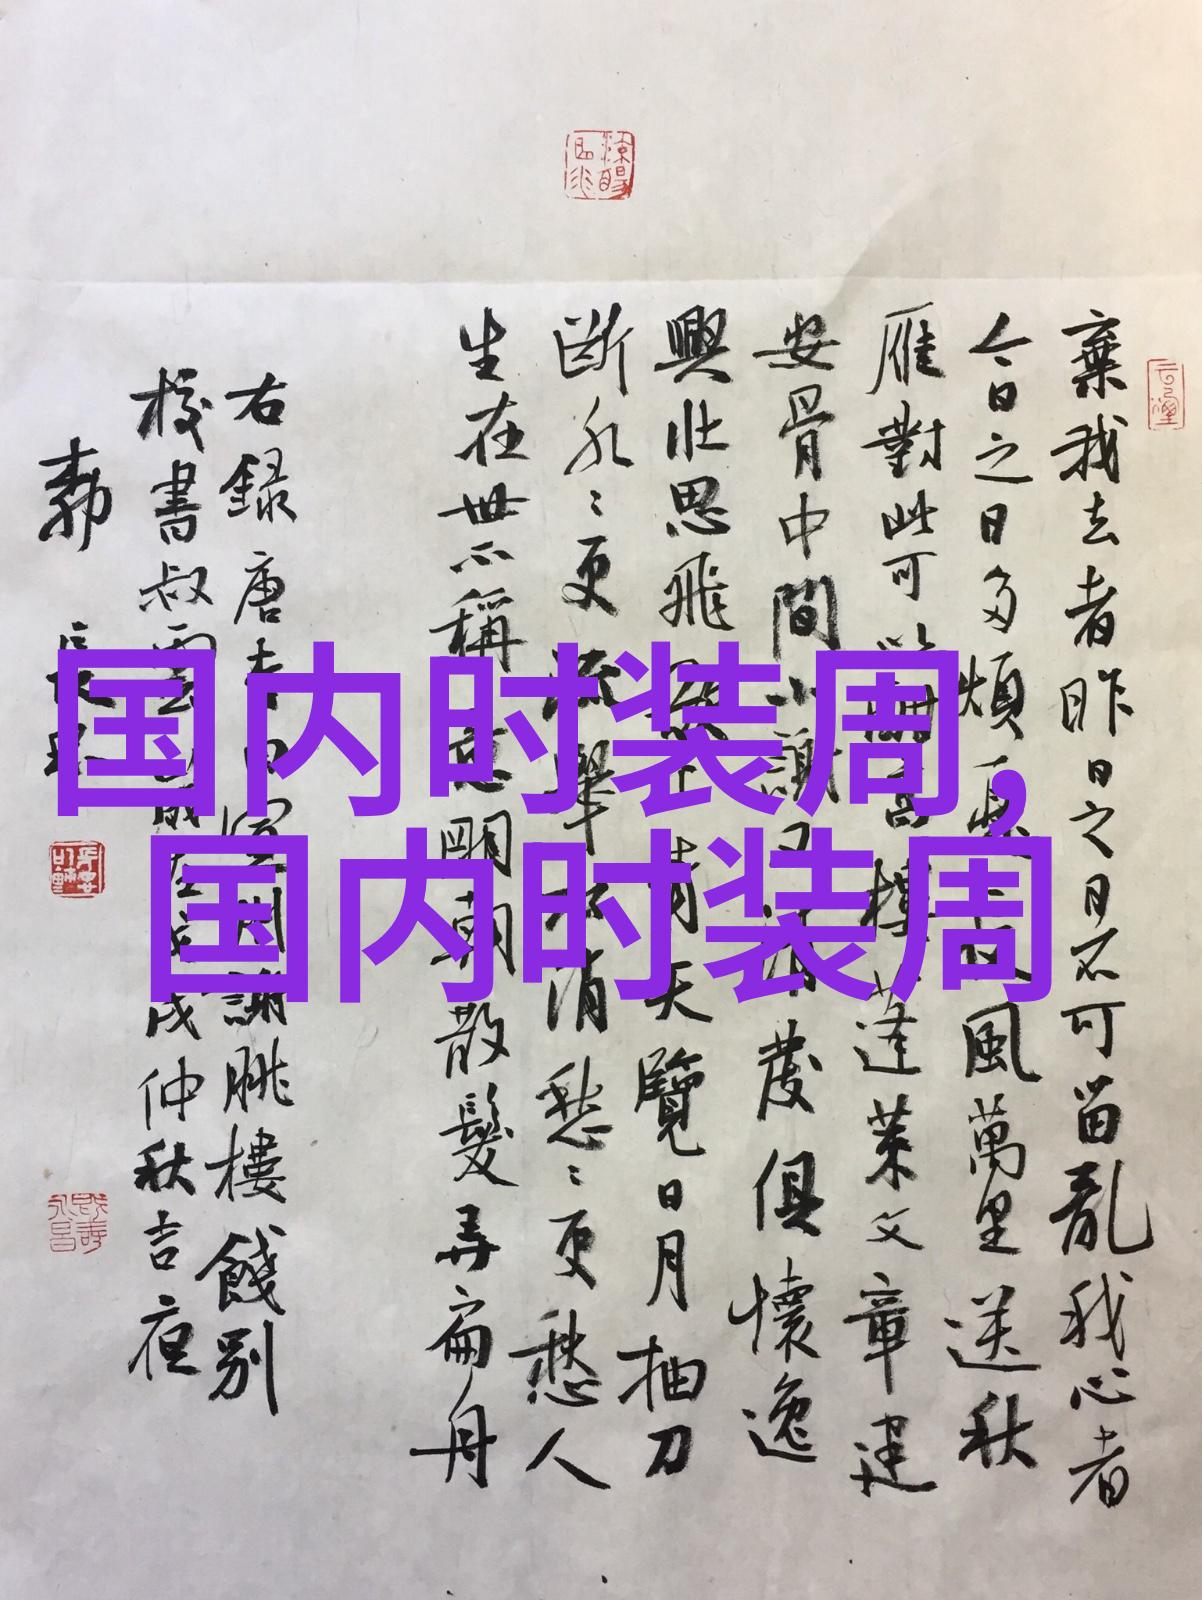 棄我去者昨日之日不可留亂我心者
今日之日多煩長風萬里送秋
雁對此可以酣高樓蓬萊文章建
安骨中間小謝又清發俱懷逸
興壯思飛欲上青天覽日月抽刀
斷水〻更流舉杯消愁〻更愁人
生在世不稱意明朝散髮弄扁舟
右録唐李白宣州謝朓樓餞別
校書叔雲戌仲秋吉夜
国内时装周,
国内时装周